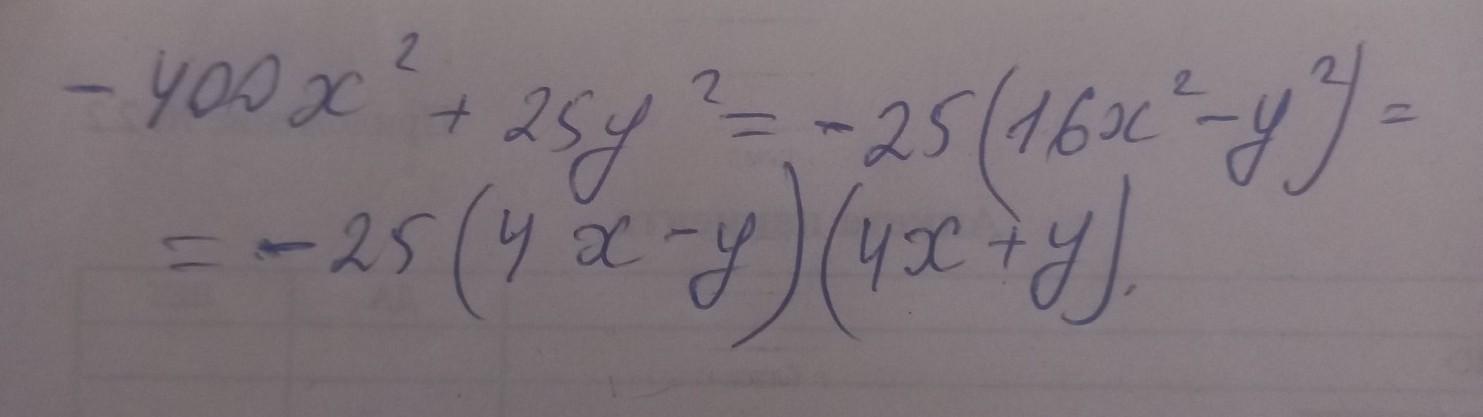 -400x² + 25y² = -25(16x² - y²) =
= -25(4x - y)(4x + y).